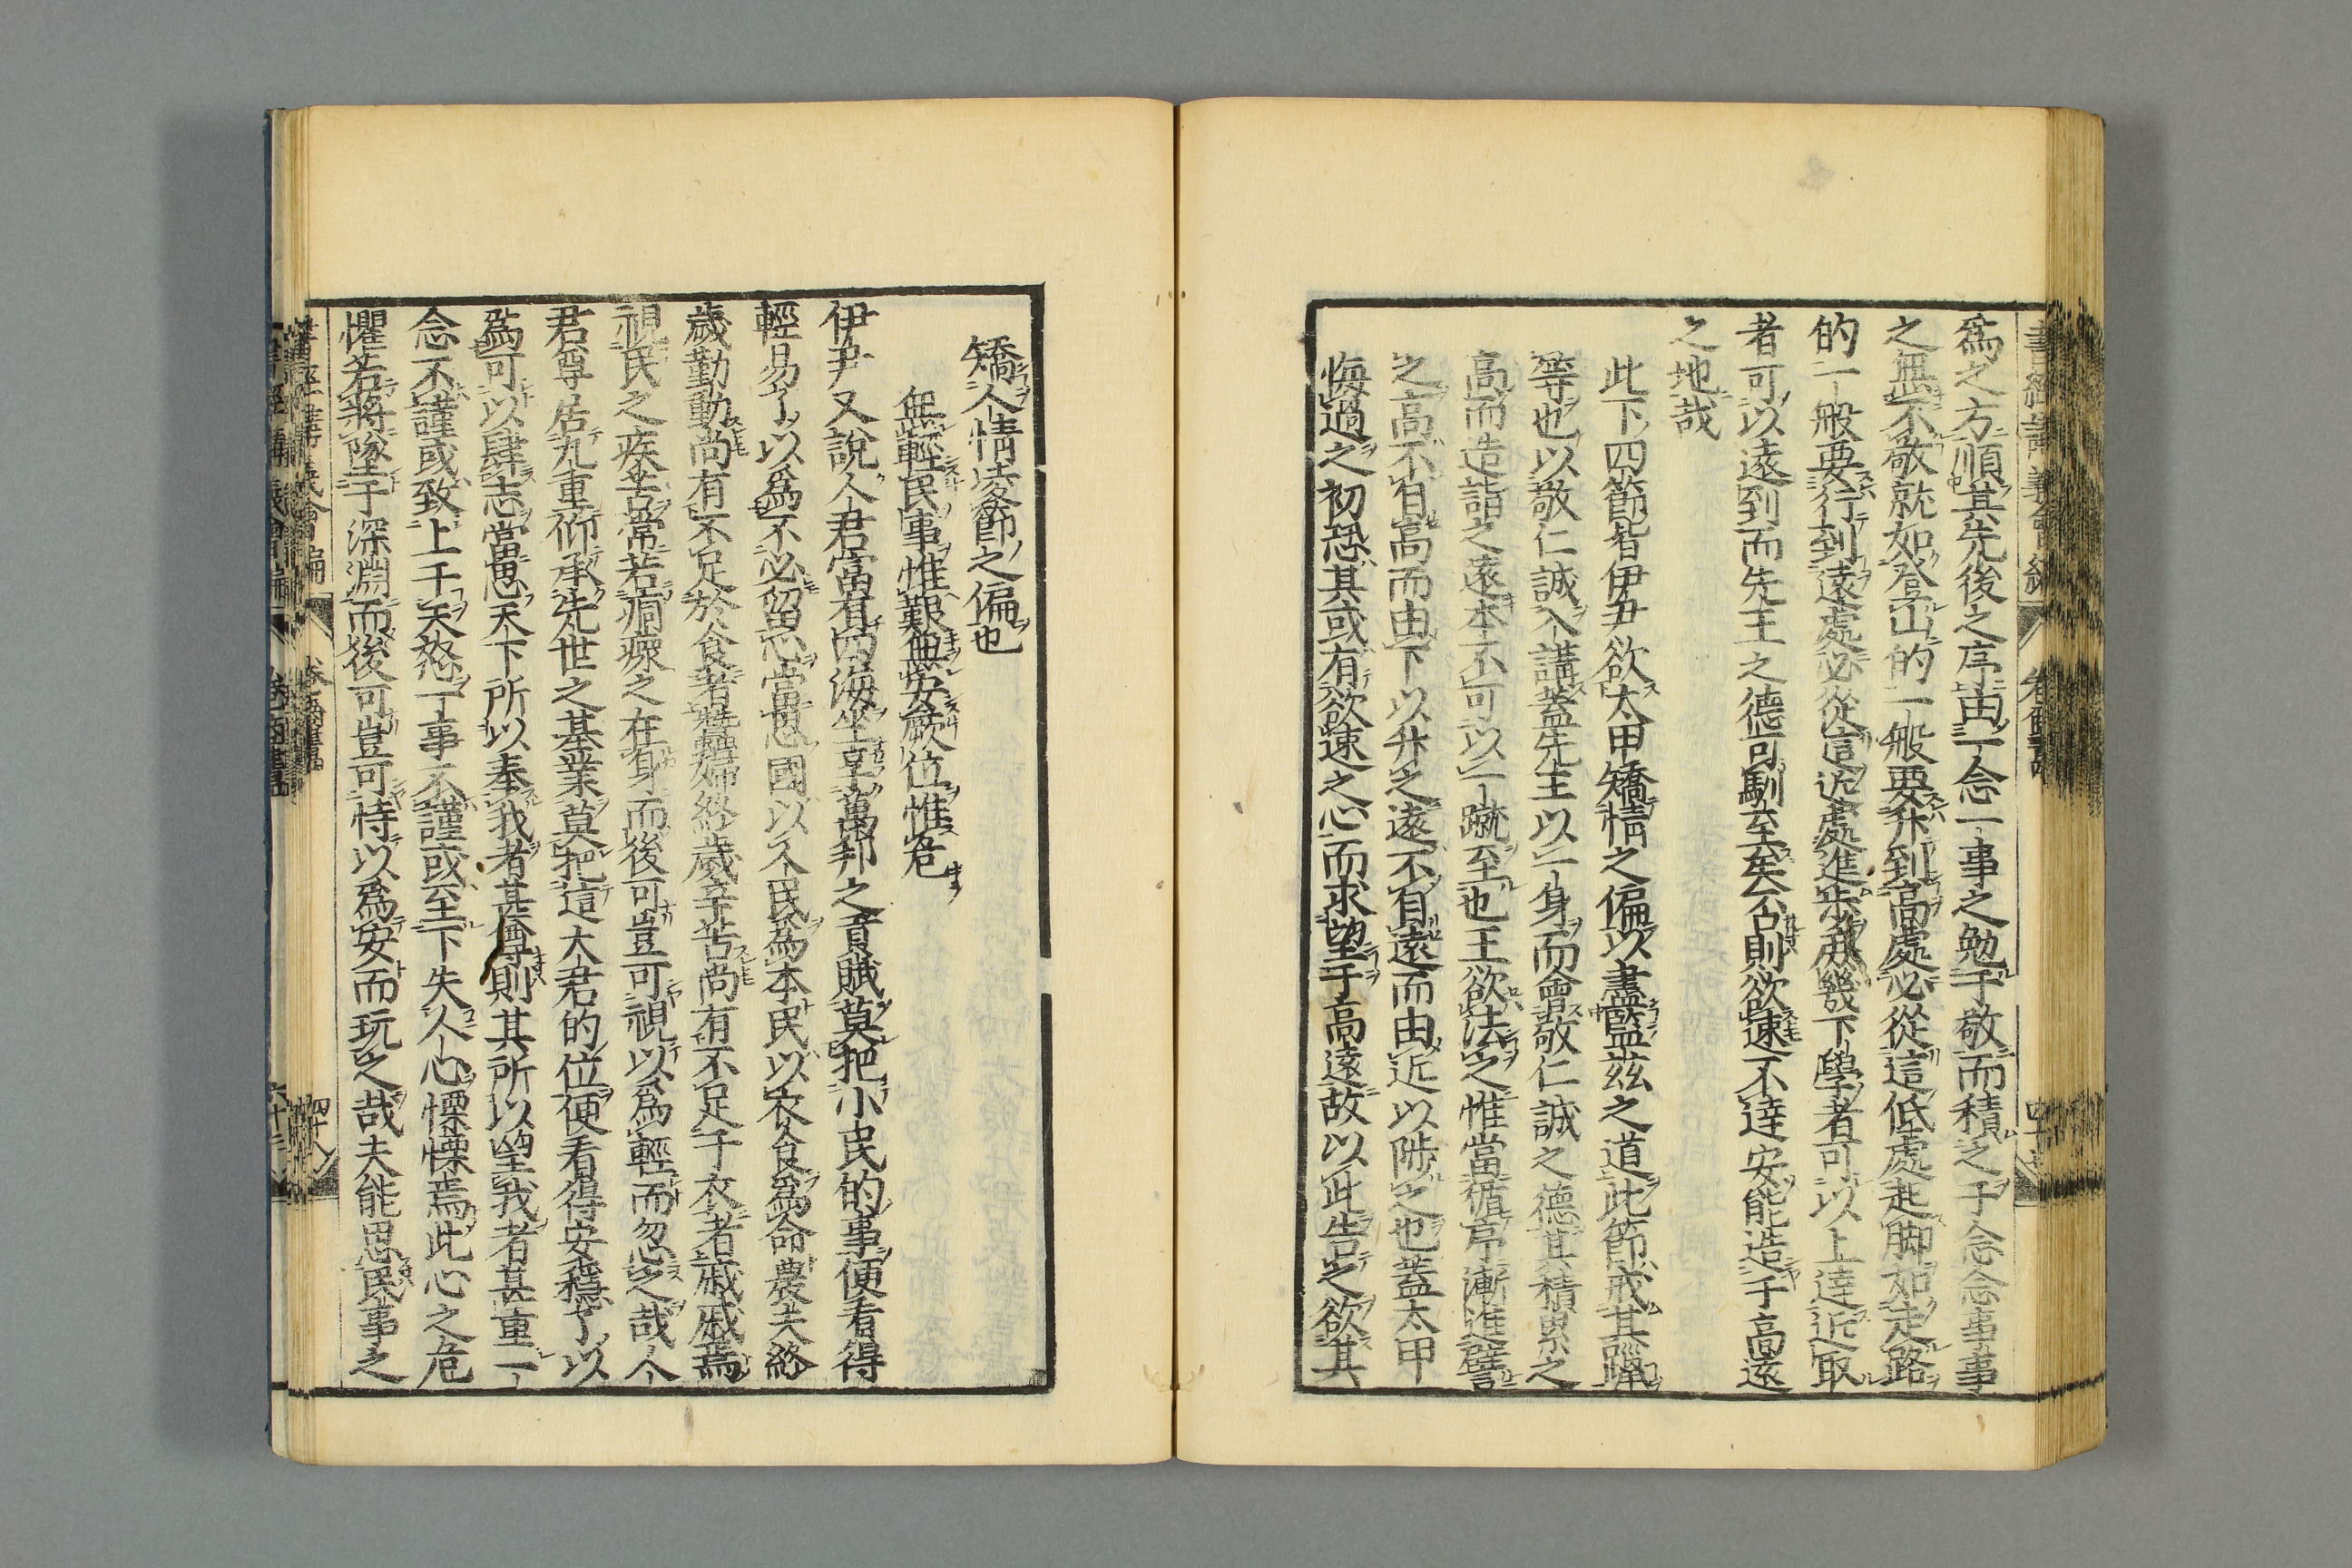 為之方順其先後之序由一念一事之勉于敬而積之于念念事事
之無不敬就如登山的一般要升到高處必從這低處起脚如走路
的一般要行到遠處必從這近處進步庶幾下學者可以上達近取
者可以遠到而先王之德可馴至矣不則欲速不達安能造于高遠
之地哉
此下四節皆伊尹欲太甲矯情之偏以盡監茲之道此節戒其躐
等也以敬仁誠入講蓋先王以一身而會敬仁誠之德其積累之
高而造詣之遠本不可以一蹴至也王欲法之惟當循序漸進譬
之高不自高而由下以升之遠不自遠而由近以陟之也蓋太甲
悔過之初恐其或有欲速之心而求望于高遠故以此告之欲其
矯人情凌節之偏也
無輕民事惟艱無安厥位惟危
伊尹又說人君富有四海坐享萬邦之貢賦莫把小民的事便看得
輕易了以為不必留思當思國以民為本民以衣食為命農夫終
歲勤動尚有不足於食者蠶婦終歲辛苦尚有不足于衣者戚戚焉
視民之疾苦常若痌瘝之在身而後可豈可視以為輕而忽之哉人
君尊居九重仰承先世之基業莫把這大君的位便看得安穩了以
為可以肆志當思天下所以奉我者甚尊則其所以望我者甚重一
念不謹或致上干天怒一事不謹或至下失人心慄慄焉此心之危
懼若將墜于深淵而後可豈可恃以為安而玩之哉夫能思民事之
四十八